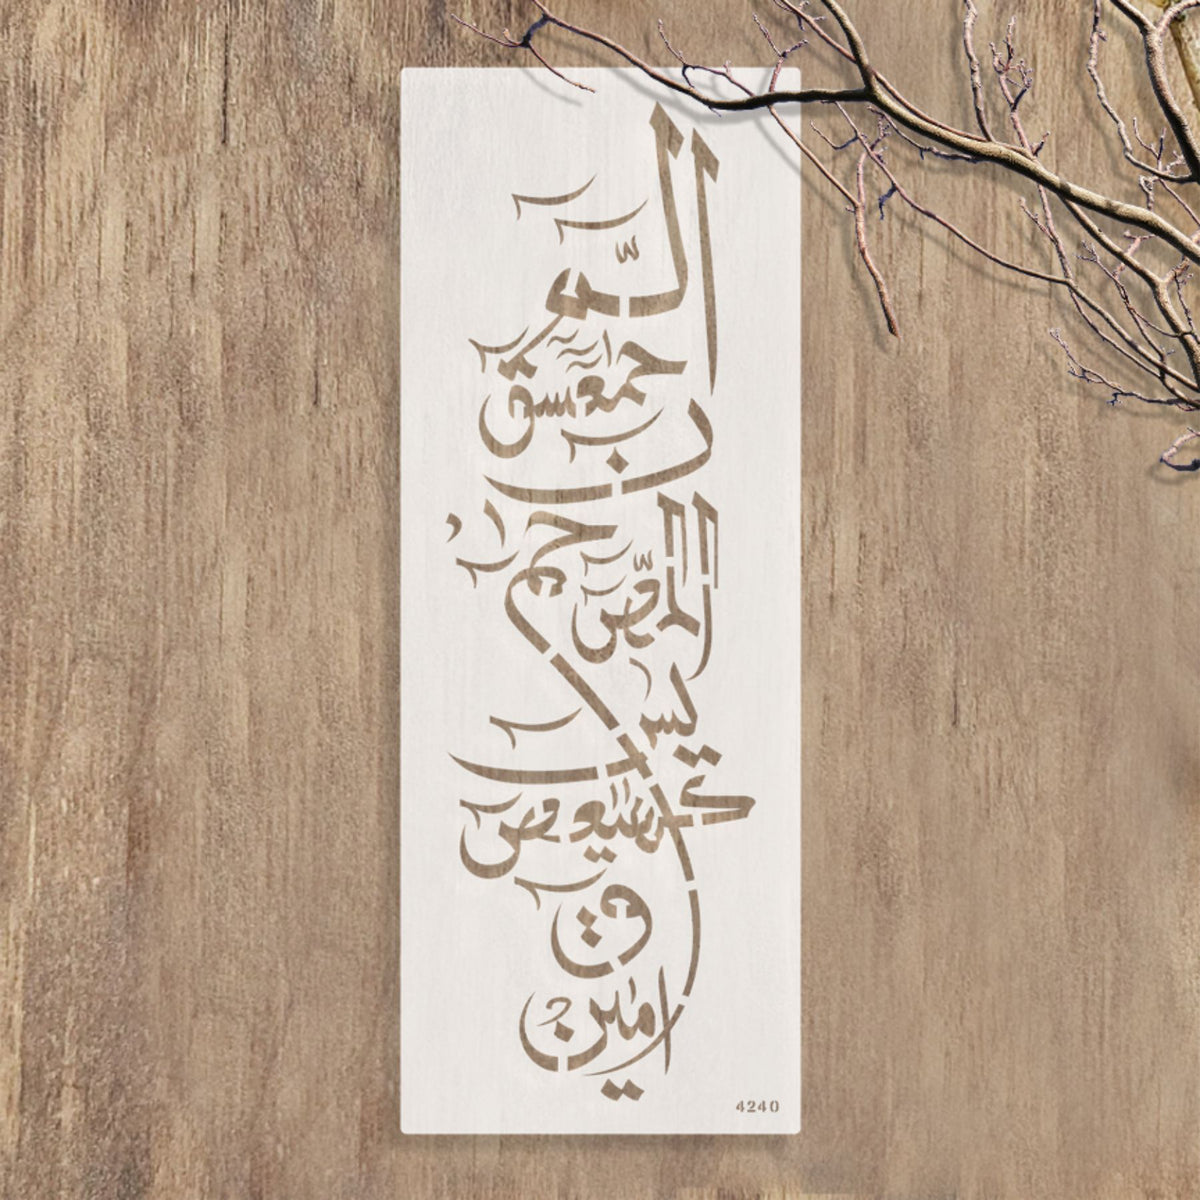 الٓمّٓر
حمعسق
ن
حم
الٓمّٓص
يس
كهيعص
ق
امين
4240